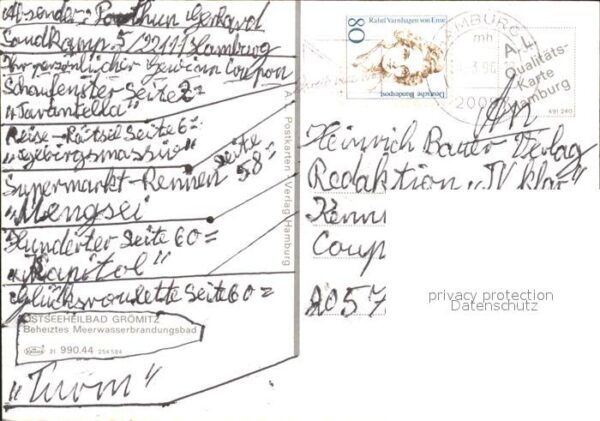 Absender: Gerhard
Sandkamp 5/2211/Hamburg
Ihr persönlicher Gewinn Coupon
Schaufenster Seite 2=
"Tarantella"
Reise-Rätsel Seite 6=
"Gebirgsmassiv"
Seite
Supermarkt-Rennen 58=
"Mengsei
Hunderter Seite 60=
"Kapitol"
Glücksroulette Seite 60=
OSTSEEHEILBAD GRÖMITZ
Beheiztes Meerwasserbrandungsbad
21 990.44 254584
"Turm"
Postkarten Verlag Hamburg
80
Rahel Varnhagen von Ense
Deutsche Bundespost
HAMBURG
mh
2000
A.L.
Qualitäts-
Karte
Hamburg
491 240
An
Heinrich Bauer Verlag
Redaktion "TV klar"
Kenn
Coup
2057
privacy protection
Datenschutz